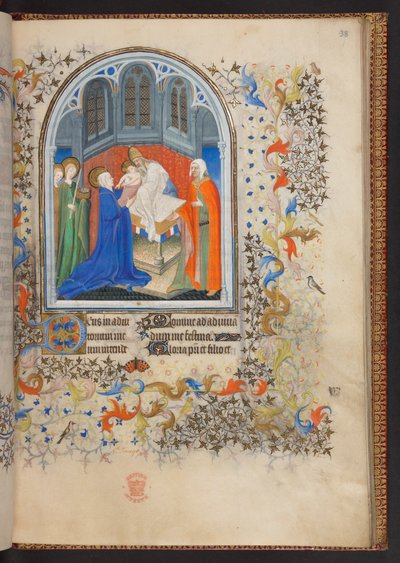 38
Deus in adiu
torium me
um intende
Domine ad adiuua
dum me festina.
Gloria pri et filio et